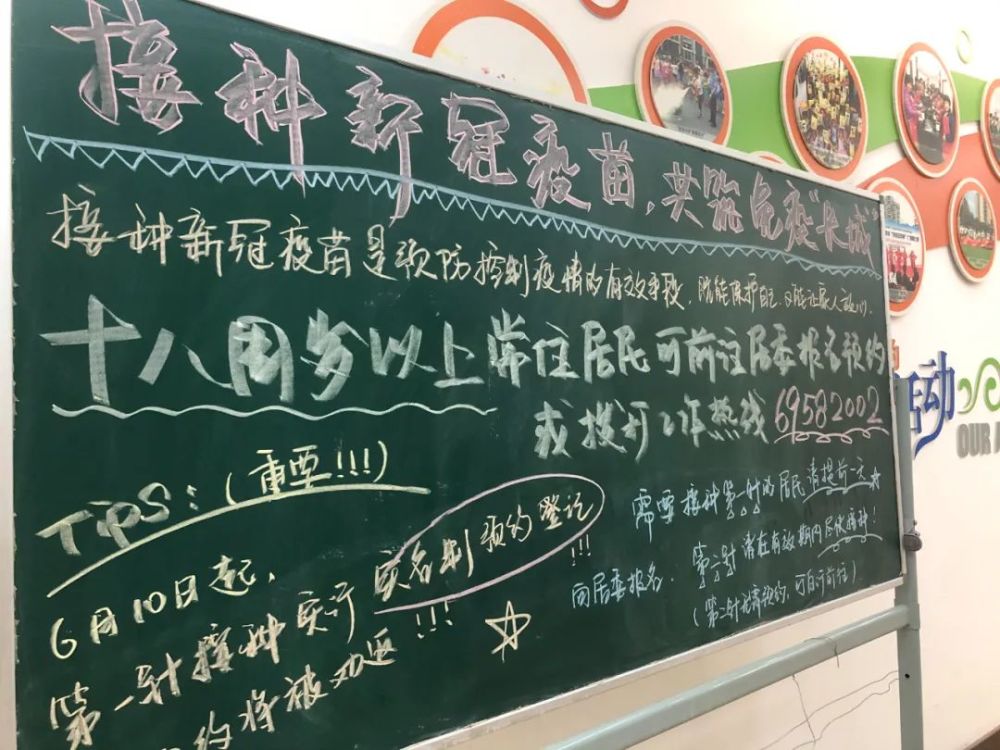 接种新冠疫苗，共筑免疫长城
接种新冠疫苗是预防控制疫情的有效手段，既能保护自己，又能让家人放心。
十八周岁以上常住居民可前往居委报名预约
或拨打工作热线69582002
TiPS：（重要!!!）
6月10日起，
第一针接种实行实名制预约登记!!!
约将被劝返!!!
需要接种第一针的居民请提前一天
向居委报名。
第二针请在有效期内尽快接种！
（第二针无需预约，可自行前往）
活动
OUR